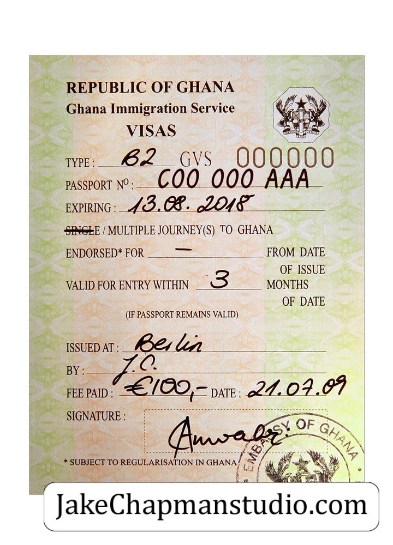 REPUBLIC OF GHANA
Ghana Immigration Service
VISAS
TYPE : B2 GVS 000000
PASSPORT Nº : C00 000 AAA
EXPIRING : 13.08.2018
SINGLE / MULTIPLE JOURNEY(S) TO GHANA
ENDORSED* FOR — FROM DATE
OF ISSUE
VALID FOR ENTRY WITHIN 3 MONTHS
OF DATE
(IF PASSPORT REMAINS VALID)
ISSUED AT : Berlin
BY : J.C.
FEE PAID : €100,- DATE : 21.07.09
SIGNATURE :
EMBASSY OF GHANA
* SUBJECT TO REGULARISATION IN GHANA
JakeChapmanstudio.com